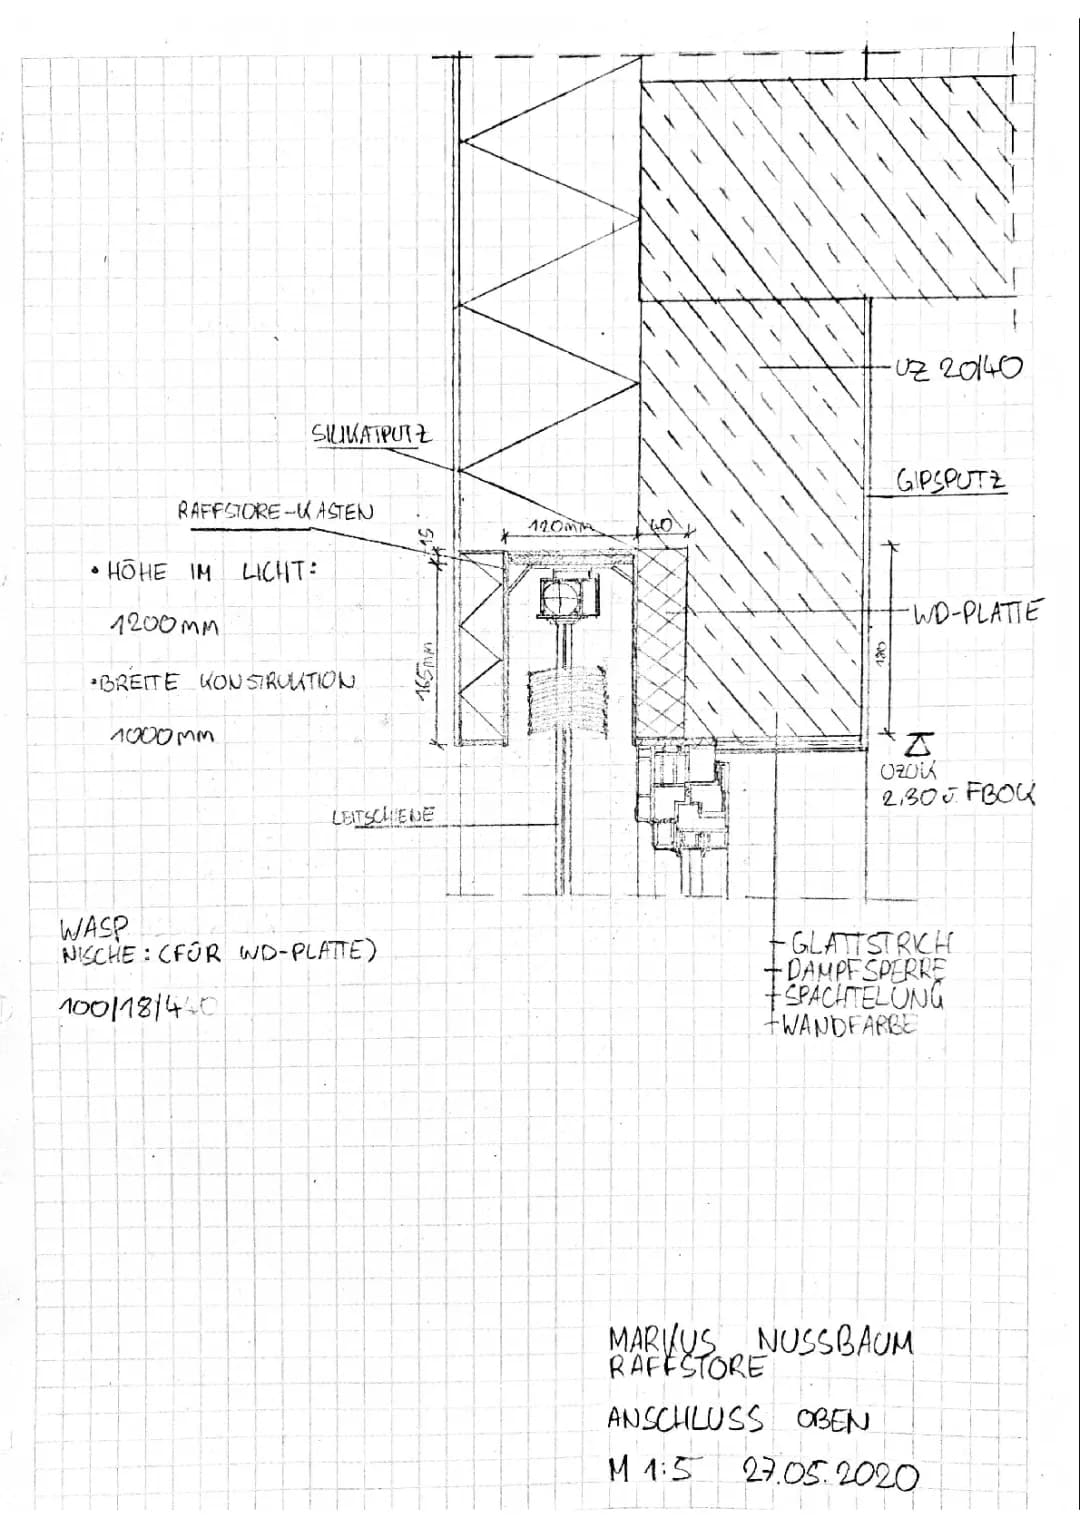 UZ 20/40
SILIKATPUTZ
GIPSPUTZ
RAFFSTORE-KASTEN
15
120mm
40
• HÖHE IM LICHT:
1200mm
WD-PLATTE
165mm
180
• BREITE KONSTRUKTION
1000mm
UZUK
2,30 ü. FBOK
LEITSCHIENE
WASP
NISCHE: (FÜR WD-PLATTE)
100/18/440
GLATTSTRICH
DAMPFSPERRE
SPACHTELUNG
WANDFARBE
MARKUS NUSSBAUM
RAFFSTORE
ANSCHLUSS OBEN
M 1:5 27.05.2020